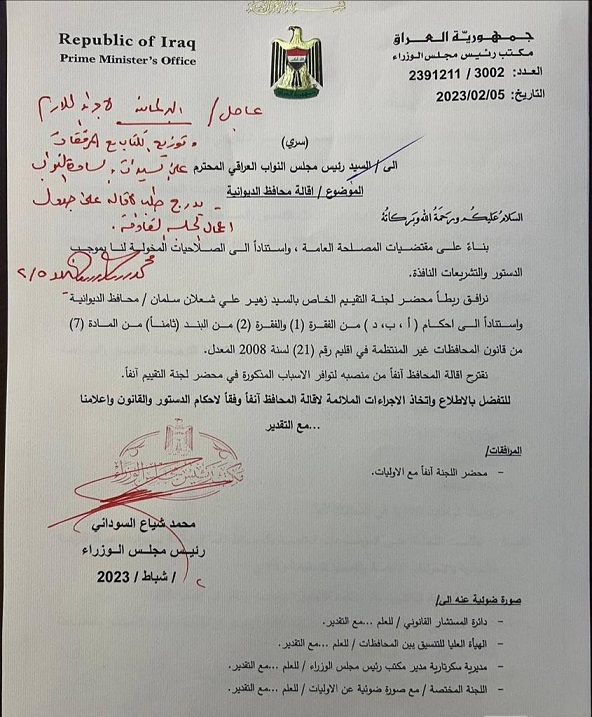 Republic of Iraq
Prime Minister's Office
جمهورية العراق
مكتب رئيس مجلس الوزراء
العدد: 3002 / 2391211
التاريخ: 2023/02/05
عاجل / البرلمانية لاجراء اللازم
وتوزيع الكتاب مع المرفقات
على السيدات والسادة النواب
يدرج طلب الاقالة على جدول
اعمال الجلسة القادمة.
٢/٥
(سري)
الى / السيد رئيس مجلس النواب العراقي المحترم
الموضوع / اقالة محافظ الديوانية
السلام عليكم ورحمة الله وبركاته
بناءً على مقتضيات المصلحة العامة ، واستناداً الى الصلاحيات المخولة لنا بموجب
الدستور والتشريعات النافذة.
نرافق ربطاً محضر لجنة التقييم الخاص بالسيد زهير علي شعلان سلمان / محافظ الديوانية
واستناداً الى احكام ( أ ، ب ، د ) من الفقرة (1) والفقرة (2) من البند (ثامناً) من المادة (7)
من قانون المحافظات غير المنتظمة في اقليم رقم (21) لسنة 2008 المعدل.
نقترح اقالة المحافظ آنفاً من منصبه لتوافر الاسباب المذكورة في محضر لجنة التقييم آنفاً.
للتفضل بالاطلاع واتخاذ الاجراءات الملائمة لاقالة المحافظ آنفاً وفقاً لاحكام الدستور والقانون واعلامنا
...مع التقدير
المرافقات/
- محضر اللجنة آنفاً مع الاوليات.
مكتب رئيس مجلس الوزراء
محمد شياع السوداني
رئيس مجلس الوزراء
/ شباط / 2023
صورة ضوئية عنه الى/
- دائرة المستشار القانوني / للعلم ...مع التقدير.
- الهيأة العليا للتنسيق بين المحافظات / للعلم ...مع التقدير.
- مديرية سكرتارية مدير مكتب رئيس مجلس الوزراء / للعلم ...مع التقدير.
- اللجنة المختصة / مع صورة ضوئية عن الاوليات / للعلم ...مع التقدير.